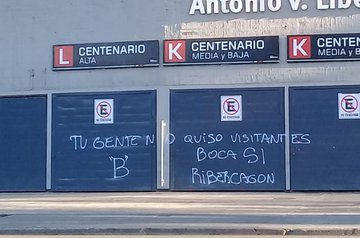 Antonio V. Libe
L CENTENARIO
ALTA
K CENTENARIO
MEDIA y BAJA
K CENTENARIO
MEDIA y BAJA
E
E
E
TU GENTE NO QUISO VISITANTES
"B" BOCA SI
RIBERCAGON